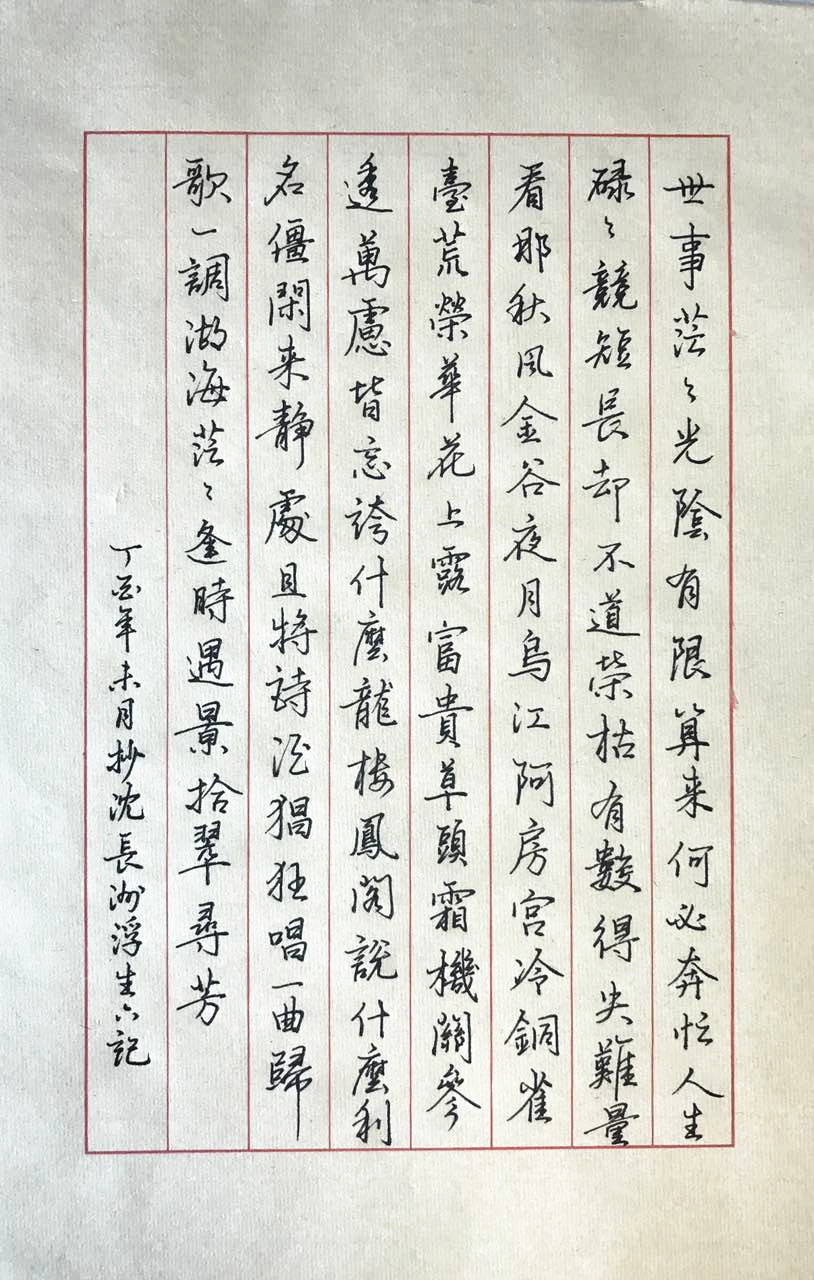 世事茫々光陰有限算来何必奔忙人生
碌々競短長却不道榮枯有數得失難量
看那秋风金谷夜月烏江阿房宫冷銅雀
臺荒榮華花上露富貴草頭霜機關參
透萬慮皆忘誇什麽龍楼鳳閣說什麽利
名僵閑来靜處且将詩酒猖狂唱一曲歸
歌一調湖海茫々逢時遇景拾翠尋芳
丁酉年未月抄沈長洲浮生六記